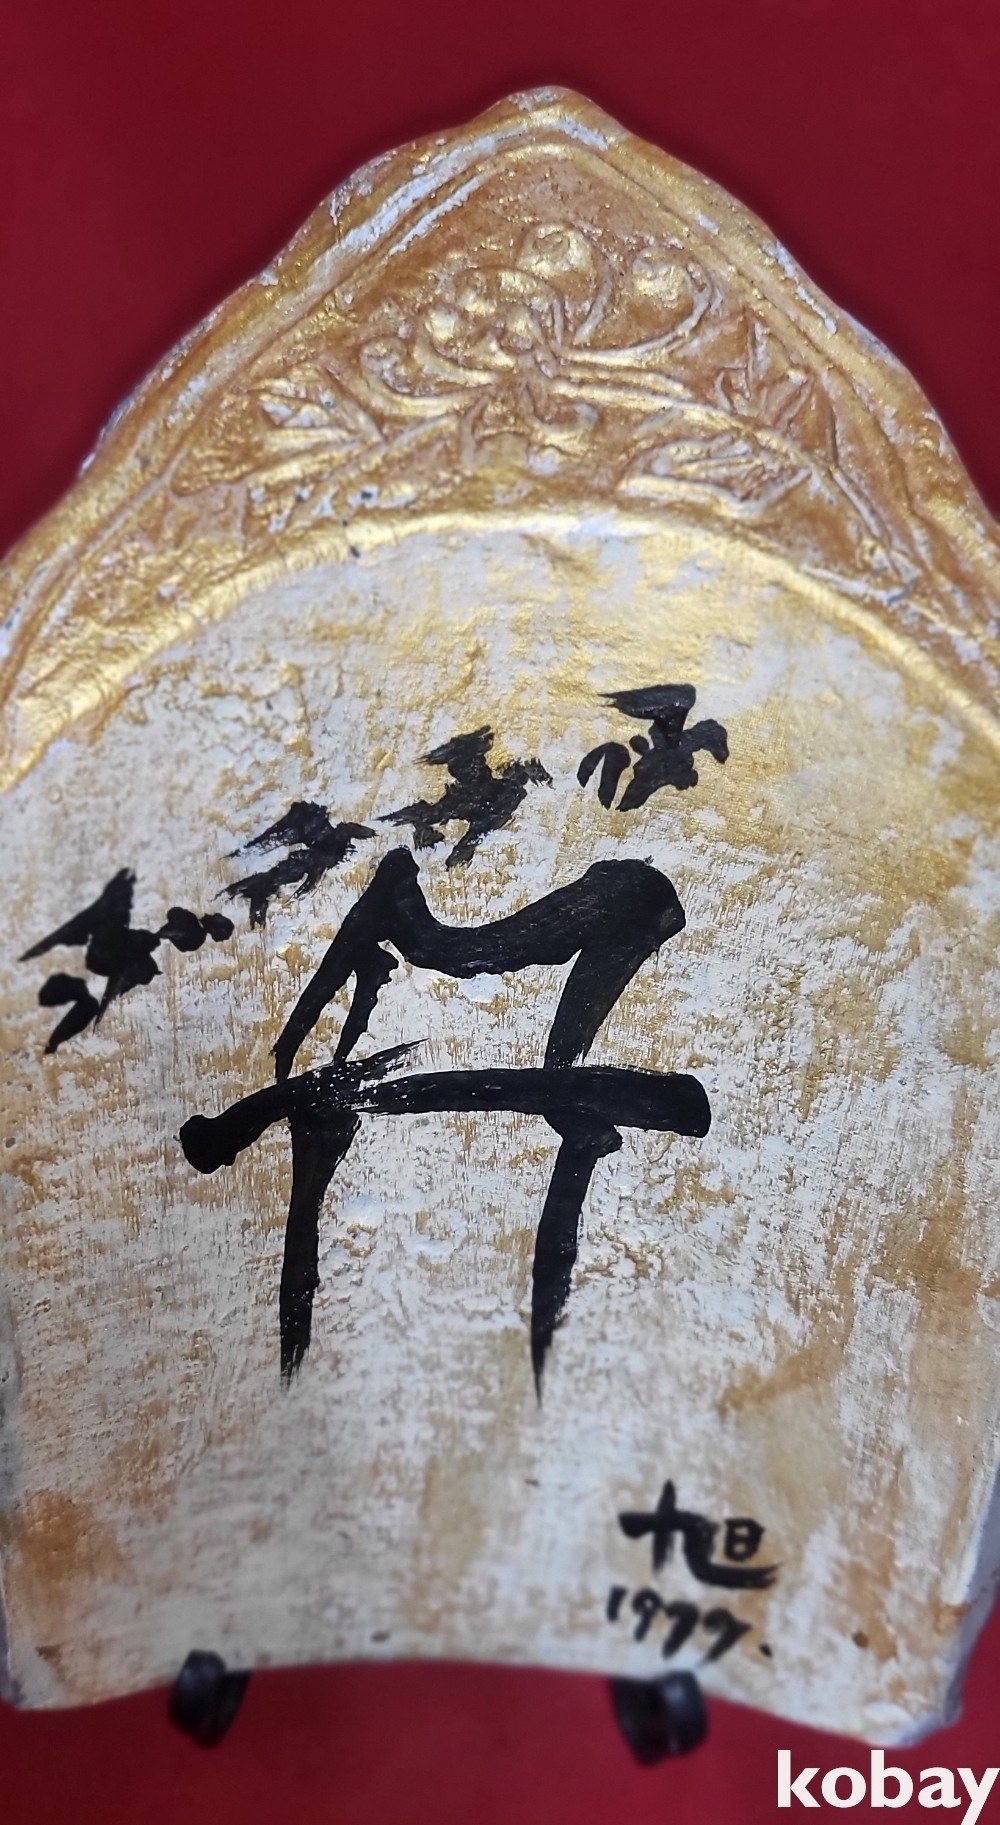 旭
1977.
kobay